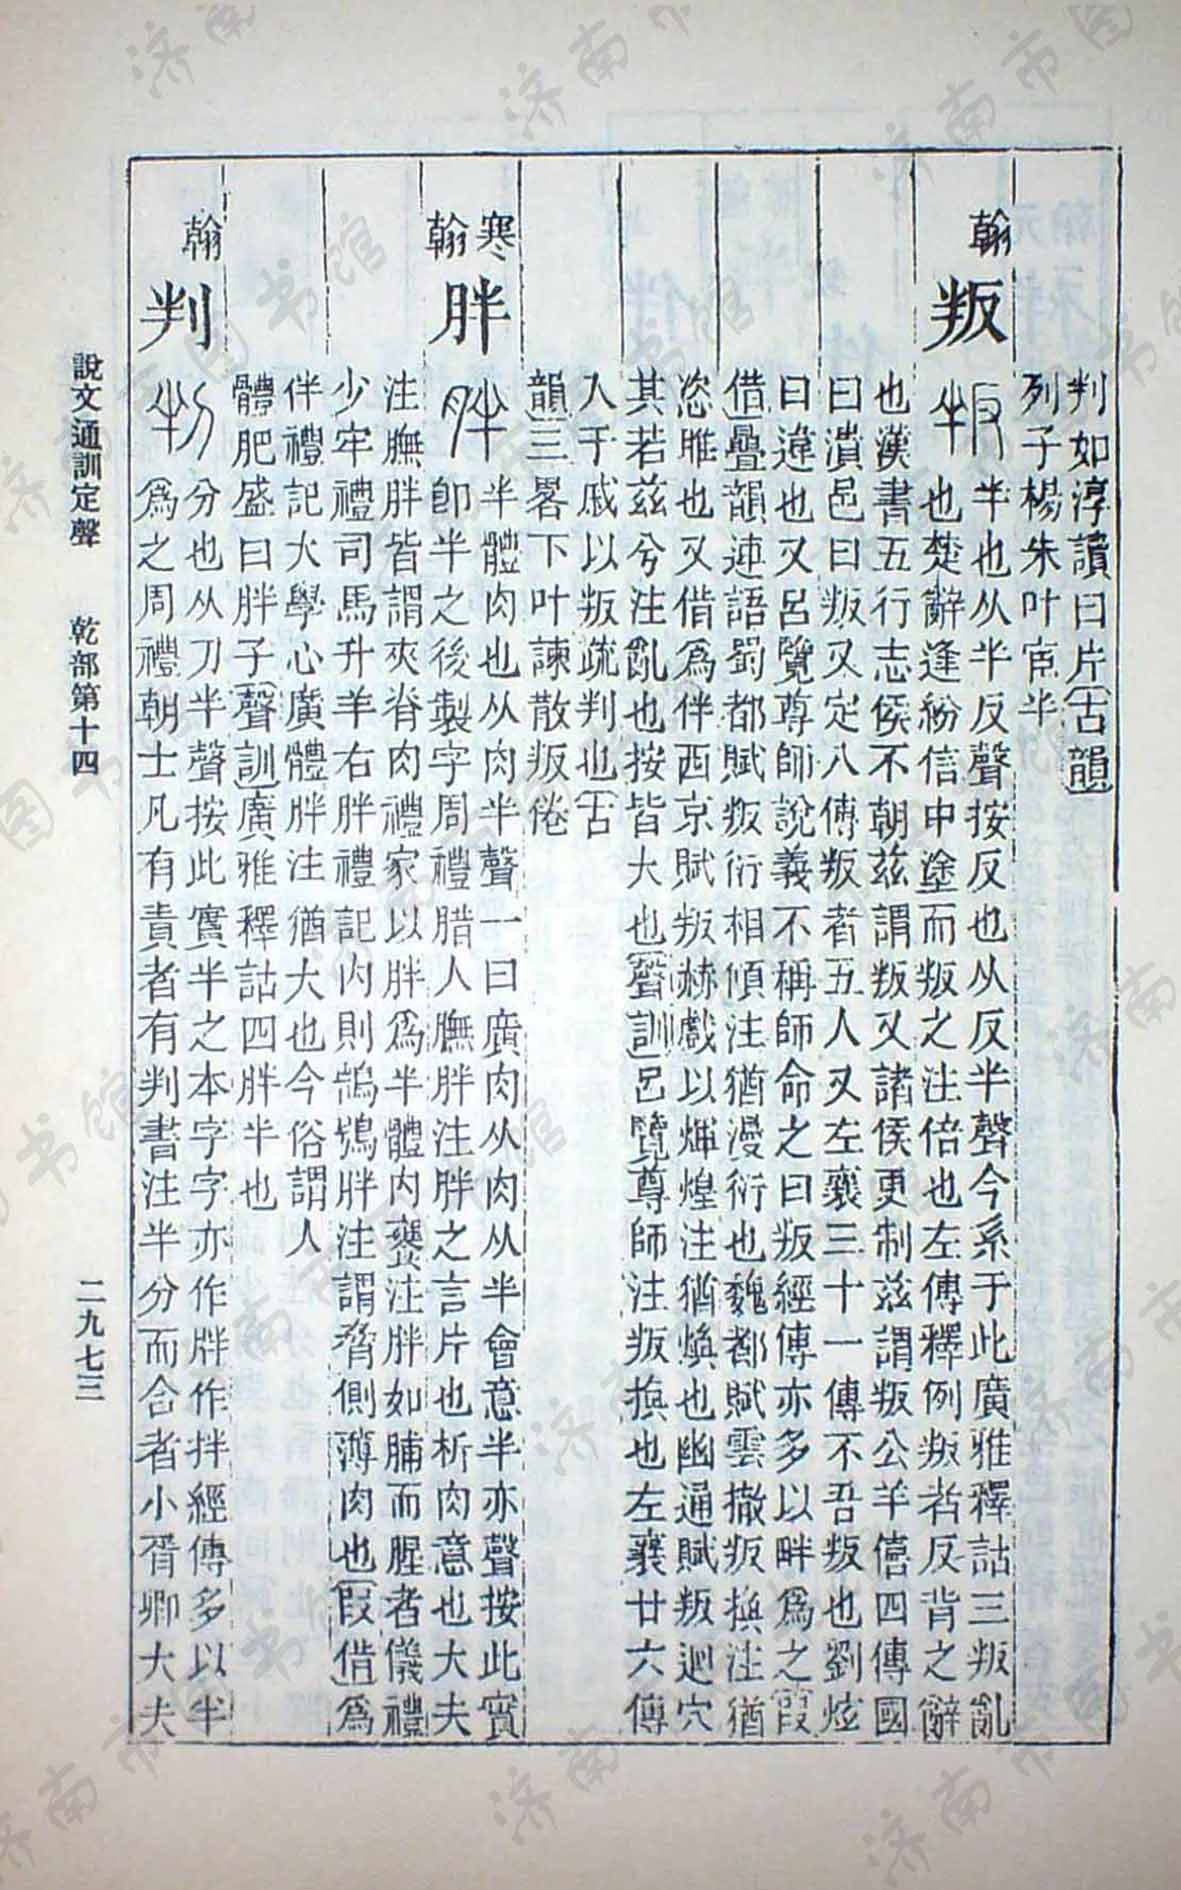 判如淳讀曰片古韻
列子楊朱叶宦半
翰
叛
半也从半反聲按反也从反半聲今系于此廣雅釋詁三叛亂
也楚辭逢紛信中塗而叛之注倍也左傳釋例叛者反背之辭
也漢書五行志侯不朝茲謂叛又諸侯更制茲謂叛公羊僖四傳國
曰潰邑曰叛又定八傳叛者五人又左襄三十一傳不吾叛也劉炫
曰違也又呂覽尊師說義不稱師命之曰叛經傳亦多以畔爲之叚
借疊韻連語蜀都賦叛衍相傾注猶漫衍也魏都賦雲撤叛換注猶
恣睢也又借爲伴西京賦叛赫戲以煇煌注猶煥也幽通賦叛迴穴
其若茲兮注亂也按皆大也聲訓呂覽尊師注叛換也左襄廿六傳
入于戚以叛疏判也古
韻三畧下叶諫散叛倦
寒
翰
胖
半體肉也从肉半聲一曰廣肉从肉从半會意半亦聲按此實
卽半之後製字周禮腊人膴胖注胖之言片也析肉意也大夫
注膴胖皆謂夾脊肉禮家以胖爲半體內饔注胖如脯而腥者儀禮
少牢禮司馬升羊右胖禮記內則鵠鴞胖注謂脅側薄肉也叚借爲
伴禮記大學心廣體胖注猶大也今俗謂人
體肥盛曰胖子聲訓廣雅釋詁四胖半也
翰
判
分也从刀半聲按此實半之本字字亦作牉作拌經傳多以半
爲之周禮朝士凡有責者有判書注半分而合者小胥卿大夫
說文通訓定聲 乾部第十四 二九七三
济南市图书馆